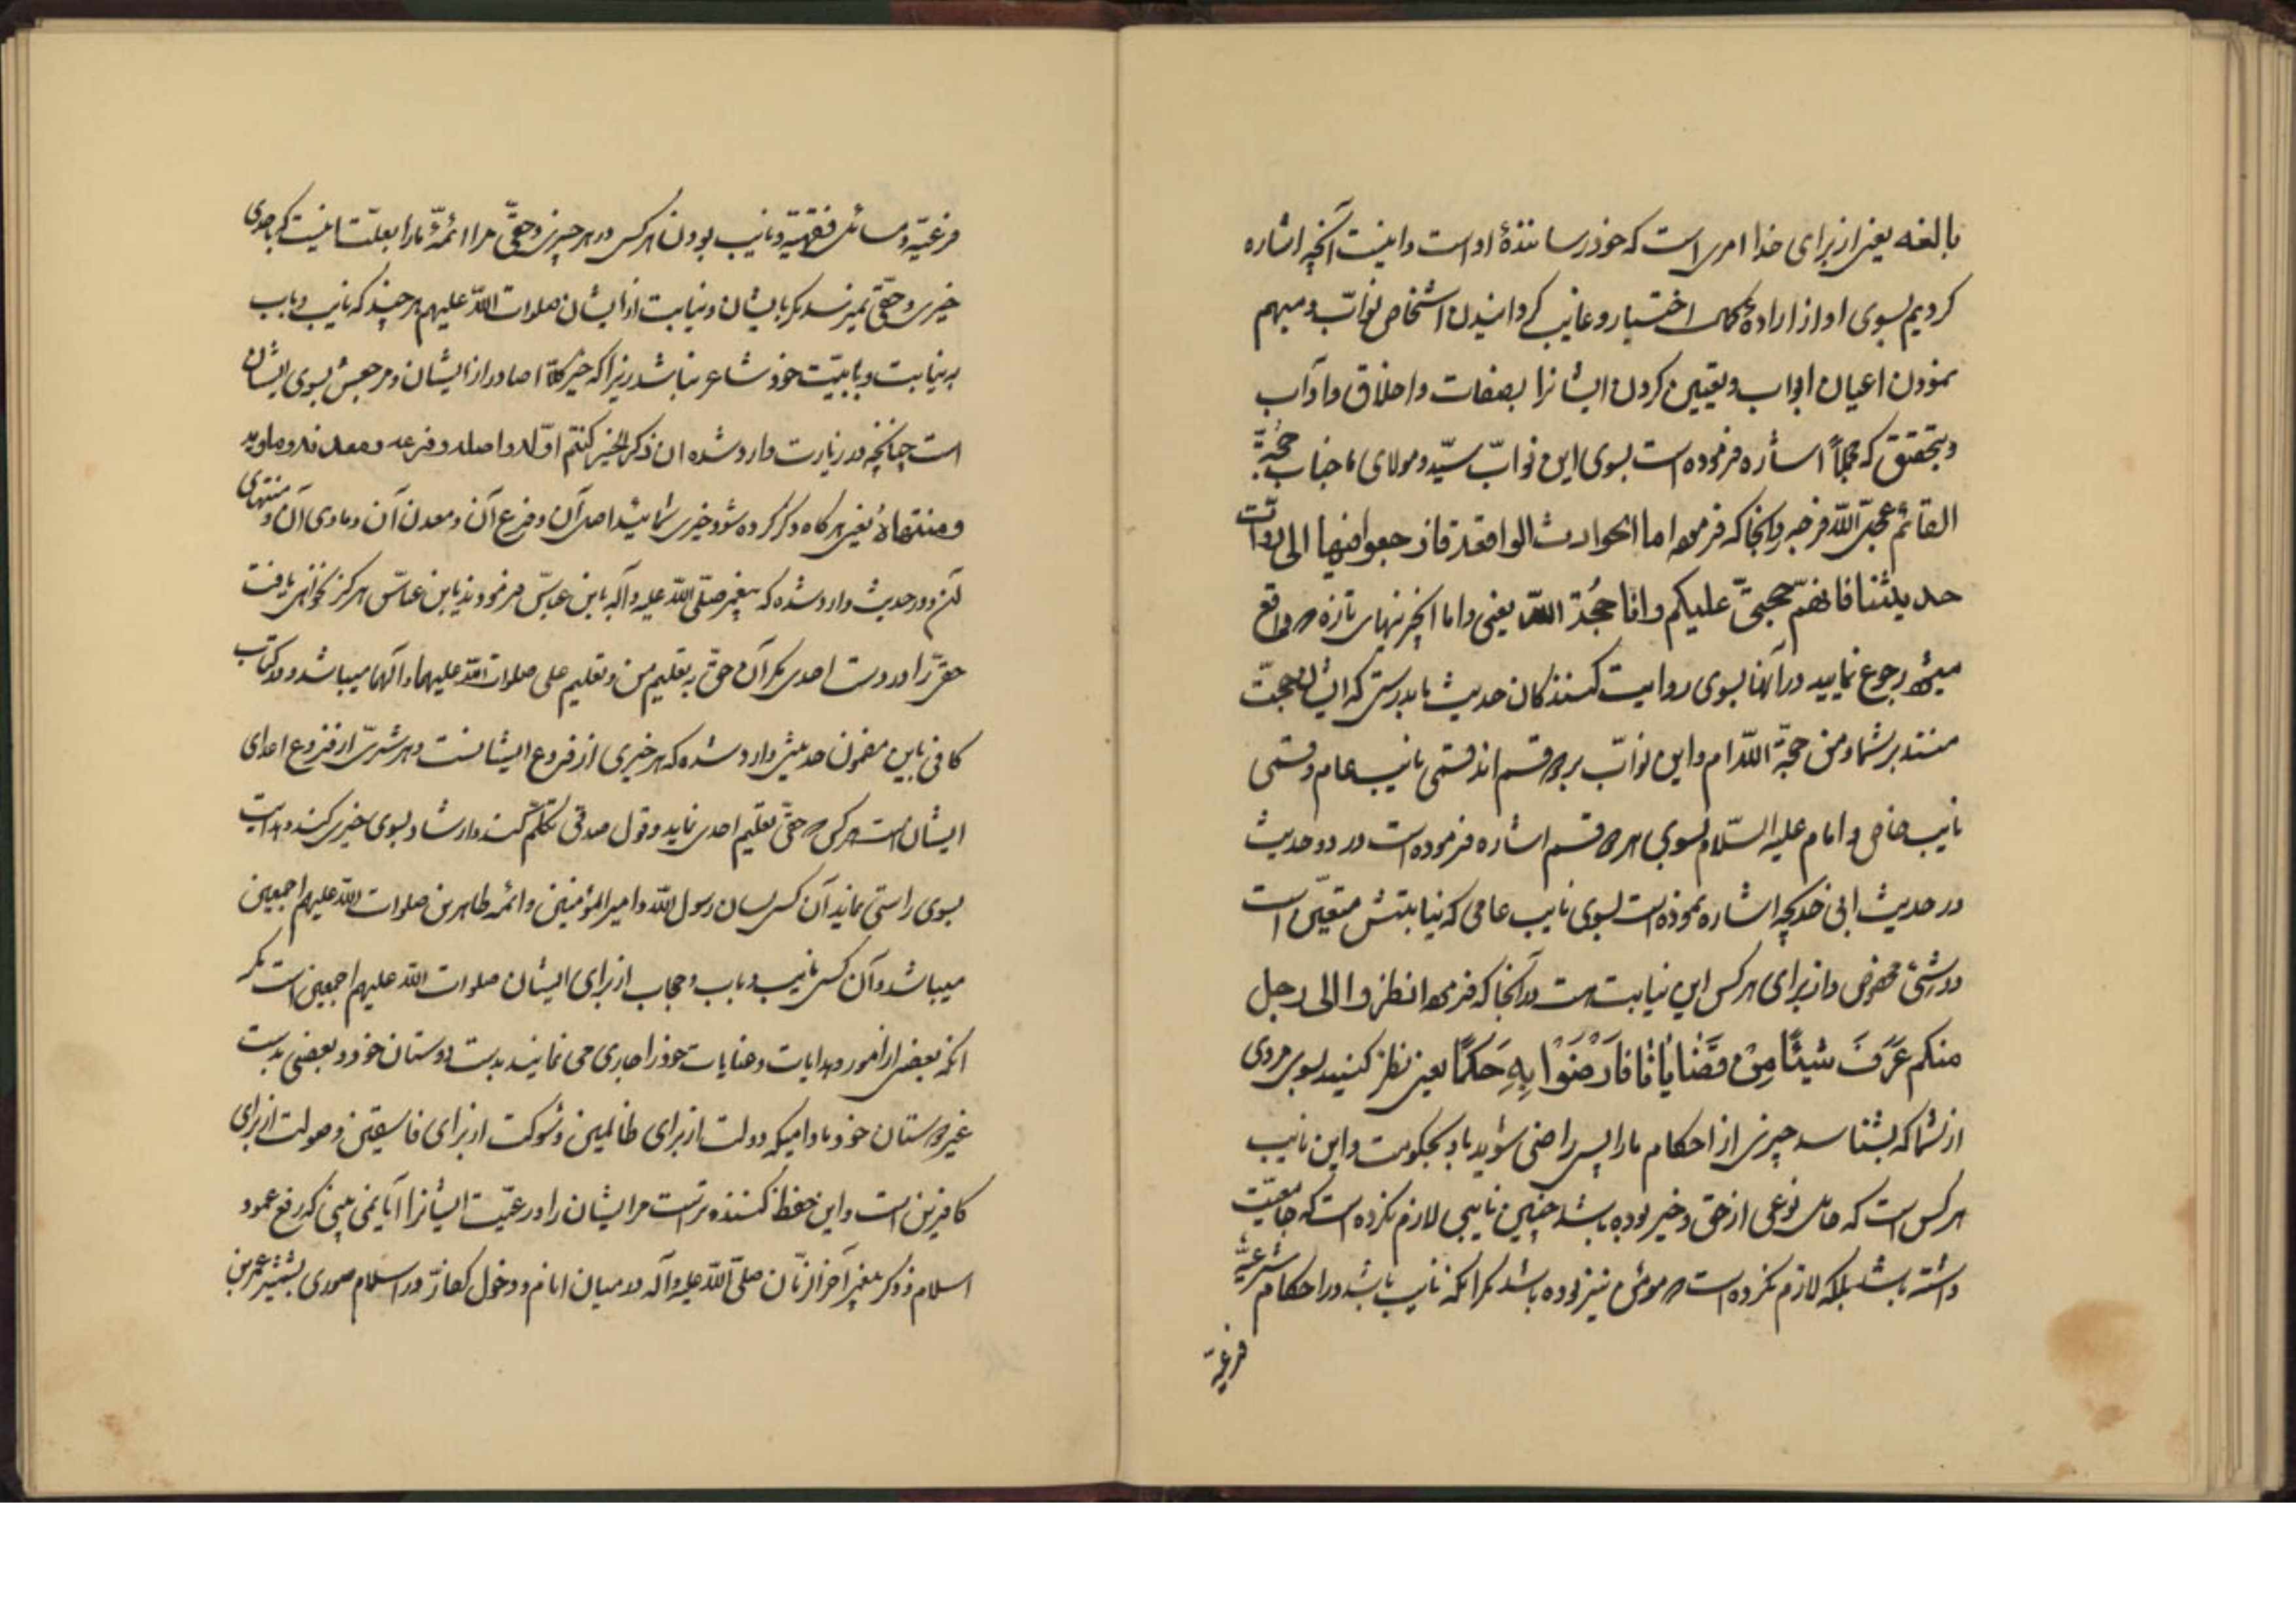 بالغه یعنی از برای خدا امری است که خود رسانندهٔ او است و اینست آنچه اشاره
کردیم بسوی او از اراده اختیار و غایب گردانیدن اشخاص نوّاب و مبهم
نمودن اعیان ابواب و تعیین کردن ایشانرا بصفات و اخلاق و آداب
و بتحقیق که مجملاً اشاره فرموده است بسوی این نوّاب سیّد و مولای ما جناب حجّة
القائم عجّل اللّه فرجه در آنجا که فرموده اما الحوادث الواقعة فارجعوا فیها الی روات
حدیثنا فانهم حجّتی علیکم وانا حجّة اللّه یعنی و اما چیزهای تازه که واقع
میشود رجوع نمایید در آنها بسوی روایت کنندکان حدیث ما بدرستی که ایشان حجت
منند بر شما و من حجّة اللّه ام و این نوّاب بر دو قسم اند قسمی نایب عام و قسمی
نایب خاص و امام علیه السّلام بسوی هر دو قسم اشاره فرموده است در دو حدیث
در حدیث ابی خدیجه اشاره نموده است بسوی نایب عامی که نیابتش متعیّن است
در شیئی مخصوص و از برای هر کس این نیابت هست در آنجا که فرموده انظروا الی رجل
منکم عَرَفَ شَیئًا مِنْ قَضٰایٰانٰا فَارْضَوْا بِهِ حَکَمًا یعنی نظر کنید بسوی مردی
از شما که بشناسد چیزی از احکام ما را پس راضی شوید باو بحکومت و این نایب
هر کس است که حامل نوعی از حق و خیر بوده باشد چنین نایبی لازم نکرده است که جامعیّت
داشته باشد بلکه لازم نکرده است که مومن نیز بوده باشد مکر انکه نایب باشد در احکام شرعیّهٔ
فرعیّه
فرعیّه و مسائل فقهیّه و نایب بودن هر کس در هر چیزی و حقّی مر ائمّهٔ ما را بعلّت اینست که باحدی
خیری و حقّی نمیرسد مکر بایشان و نیابت از ایشان صلوات اللّه علیهم هر چند که نایب و باب
به نیابت و بابیّت خود شاعر نباشد زیرا که خیر کلاًّ صادر از ایشان و مرجعش بسوی ایشان
است چنانچه در زیارت وارد شده ان ذکر الخیر کنتم اوّله و اصله و فرعه و معدنه و ماویه
و منتهاهُ یعنی هر کاه ذکر کرده شود خیری شمایید اصل آن و فرع آن و معدن آن و ماوی آن و منتهای
آن و در حدیث وارد شده که پیغمبر صلّی اللّه علیه و آله بابن عبّاس فرمودند یابن عبّاس هرکز نخواهی یافت
حقّی را در دست احدی مکر آن حق به تعلیم من و تعلیم علی صلوات اللّه علیهما و آلهما میباشد و در کتاب
کافی باین مضمون حدیثی وارد شده که هر خیری از فروع ایشانست و هر شرّی از فروع اعدای
ایشان است هر کس که حقّ تعلیم احدی نماید و قول صدقی تکلّم کند و ارشاد بسوی خیری کند و هدایت
بسوی راستی نماید آن کس لسان رسول اللّه و امیر المؤمنین و ائمه طاهرین صلوات اللّه علیهم اجمعین
میباشد و آن کس نایب و باب و حجاب از برای ایشان صلوات اللّه علیهم اجمعین است مکر
انکه بعضی از امور و هدایات و عنایات خود را جاری می نمایند بدست دوستان خود و بعضی بدست
غیر دوستان خود مادامیکه دولت از برای ظالمین و شوکت از برای فاسقین و صولت از برای
کافرین است و این حفظ کننده تر است مر ایشان را و رعیّت ایشانرا آیا نمی بینی که رفع عمود
اسلام و ذکر پیغمبر آخر الزّمان صلّی اللّه علیه و آله در میان انام و دخول کفّار در اسلام صوری بشمشیر عمر بن